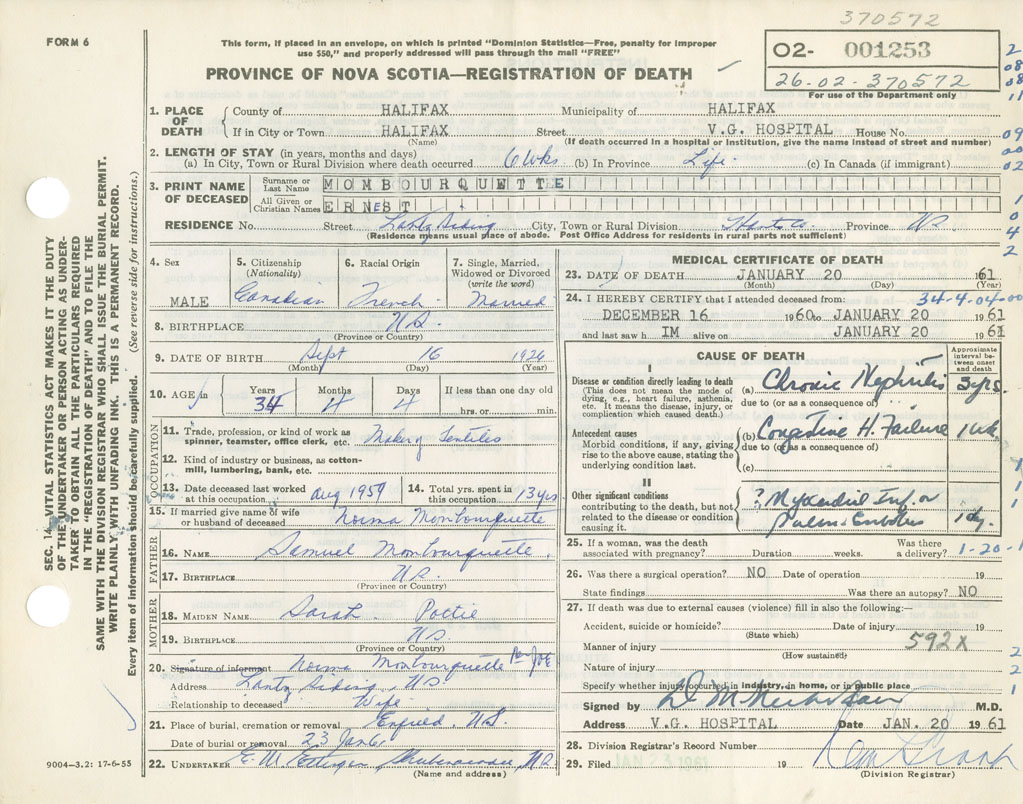 370572
FORM 6
This form, if placed in an envelope, on which is printed "Dominion Statistics—Free, penalty for improper
use $50," and properly addressed will pass through the mail "FREE"
PROVINCE OF NOVA SCOTIA—REGISTRATION OF DEATH
02- 001253
26-02-370572
For use of the Department only
2
08
08
11
09
00
02
1
0
4
2
1. PLACE OF DEATH
County of HALIFAX Municipality of HALIFAX
If in City or Town HALIFAX Street V.G. HOSPITAL House No.
(Name) (If death occurred in a hospital or institution, give the name instead of street and number)
2. LENGTH OF STAY (in years, months and days)
(a) In City, Town or Rural Division where death occurred 6 wks (b) In Province Life. (c) In Canada (if immigrant)
3. PRINT NAME OF DECEASED
Surname or Last Name MOMBOURQUETTE
All Given or Christian Names ERNEST
RESIDENCE No. Street Lantz Siding City, Town or Rural Division Hants Co. Province NS.
(Residence means usual place of abode. Post Office Address for residents in rural parts not sufficient)
SEC. 14 VITAL STATISTICS ACT MAKES IT THE DUTY
OF THE UNDERTAKER OR PERSON ACTING AS UNDER-
TAKER TO OBTAIN ALL THE PARTICULARS REQUIRED
IN THE "REGISTRATION OF DEATH" AND TO FILE THE
SAME WITH THE DIVISION REGISTRAR WHO SHALL ISSUE THE BURIAL PERMIT.
WRITE PLAINLY WITH UNFADING INK. THIS IS A PERMANENT RECORD.
Every item of information should be carefully supplied. (See reverse side for instructions.)
4. Sex MALE
5. Citizenship (Nationality) Canadian
6. Racial Origin French
7. Single, Married, Widowed or Divorced (write the word) Married
8. BIRTHPLACE NS.
(Province or Country)
9. DATE OF BIRTH Sept 16 1926
(Month) (Day) (Year)
10. AGE Years 34 Months 4 Days 4 If less than one day old hrs. or min.
OCCUPATION
11. Trade, profession, or kind of work as
spinner, teamster, office clerk, etc. Making Textiles
12. Kind of industry or business, as cotton-
mill, lumbering, bank, etc.
13. Date deceased last worked at this occupation Aug 1959
14. Total yrs. spent in this occupation 13 yrs
15. If married give name of wife
or husband of deceased Norma Mombourquette
FATHER
16. NAME Samuel Mombourquette.
17. BIRTHPLACE NS.
(Province or Country)
MOTHER
18. MAIDEN NAME Sarah Poctie
19. BIRTHPLACE NS
(Province or Country)
20. Signature of informant Norma Mombourquette Per JOE
Address Lantz Siding, NS
Relationship to deceased Wife
21. Place of burial, cremation or removal Enfield, NS.
Date of burial or removal 23 Jan 61
22. UNDERTAKER E. W. Ettinger Shubenacadie, NS
(Name and address)
9004—3.2: 17-6-55
MEDICAL CERTIFICATE OF DEATH
23. DATE OF DEATH JANUARY 20 1961
(Month) (Day) (Year)
24. I HEREBY CERTIFY that I attended deceased from: 34-4-04-00
DECEMBER 16 1960 to JANUARY 20 1961
and last saw h IM alive on JANUARY 20 1961
CAUSE OF DEATH
Approximate interval between onset and death
I
Disease or condition directly leading to death
(This does not mean the mode of
dying, e.g., heart failure, asthenia,
etc. It means the disease, injury, or
complication which caused death.)
(a) Chronic Nephritis 3 yrs.
due to (or as a consequence of)
Antecedent causes
Morbid conditions, if any, giving
rise to the above cause, stating the
underlying condition last.
(b) Congestive H. Failure 1 wk
due to (or as a consequence of)
(c)
II
Other significant conditions
contributing to the death, but not
related to the disease or condition
causing it.
? Myocardial Inf. or
Pulm. Embolus 1 dy.
25. If a woman, was the death
associated with pregnancy? Duration weeks. Was there a delivery? 1-20-1
26. Was there a surgical operation? NO Date of operation 19
State findings Was there an autopsy? NO
27. If death was due to external causes (violence) fill in also the following:—
Accident, suicide or homicide? Date of injury 19
(State which)
Manner of injury 592X
(How sustained)
Nature of injury
Specify whether injury occurred in industry, in home, or in public place
Signed by M.D.
Address V.G. HOSPITAL Date JAN. 20 1961
28. Division Registrar's Record Number
29. Filed JAN 23 1961 19
(Division Registrar)
1
1
1
2
2
1